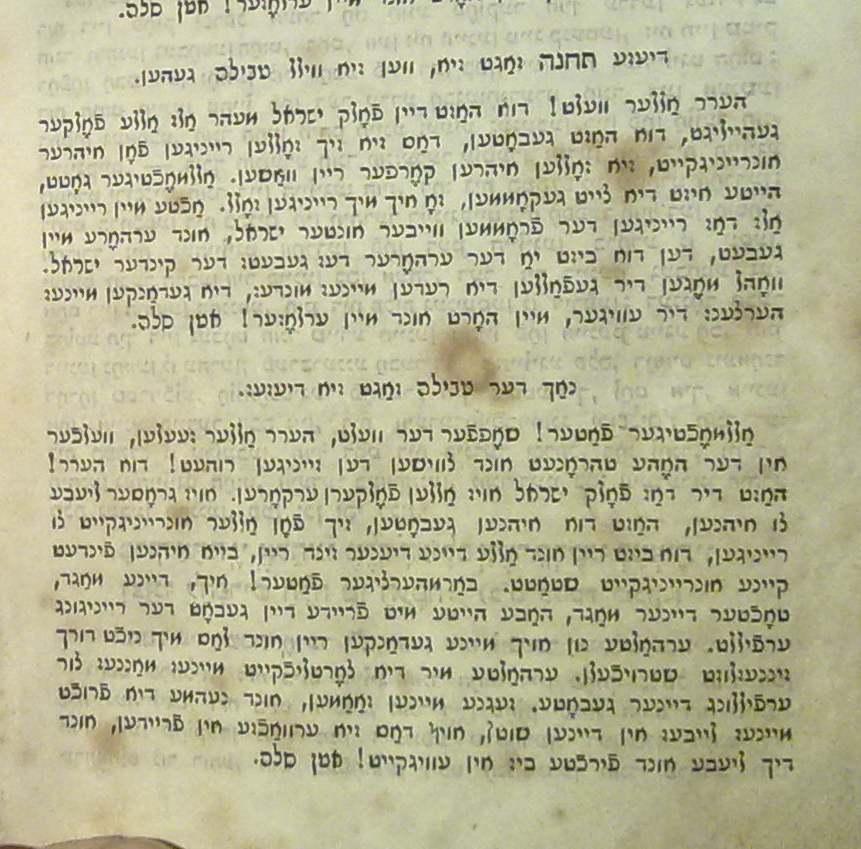 אונד מיין ערלאָזער! אמן סלה.
דיעזע תחנה זאַגט זיא, ווען זיא וויל טבילה געהען.
הערר אַללער וועלט! דוא האַזט דיין פֿאָלק ישראל מעהר אַלז אַללע פֿאָלקער
געהייליגט, דוא האַזט געבאָטען, דאַס זיא זיך זאָללען רייניגען פֿאָן איהרער
אונרייניגקייט, זיא זאָללען איהרען קאָרפער ריין וואַשען. אַללמאָכֿטיגער גאָטט,
הייטע איזט דיא צייט געקאָממען, וואָ איך מיך רייניגען זאָלל. אַכֿטע מיין רייניגען
אַלז דאַז רייניגען דער פֿראָממען ווייבער אונטער ישראל, אונד ערהאָרע מיין
געבעט, דען דוא ביזט יאַ דער ערהאָרער דעז געבעטז דער קינדער ישראל.
וואָהל מאָגען דיר געפֿאַללען דיא רעדען מיינעז מונדעז, דיא געדאַנקען מיינעז
הערצענז דיר עוויגער, מיין האָרט אונד מיין ערלאָזער! אמן סלה.
נאָך דער טבילה זאַגט זיא דיעזעז.
אַללמאָכֿטיגער פֿאָטער! שאָפפֿער דער וועלט, הערר אַללער זעעלען, וועלכֿער
אין דער האָהע טהראָנעט אונד צווישען דען זייניגען רוהעט! דוא הערר!
האַזט דיר דאַז פֿאָלק ישראל אויז אַללען פֿאָלקערן ערקאָרען. אויז גראָסער ליעבע
צו איהנען, האַזט דוא איהנען געבאָטען, זיך פֿאָן אַללער אונרייניגקייט צו
רייניגען, דוא ביזט ריין אונד אַללע דיינע דיענער זינד ריין, בייא איהנען פֿינדעט
קיינע אונרייניגקייט שטאַטט. באַרמהערציגער פֿאָטער! איך, דיינע מאַגד,
טאָכֿטער דיינער מאַגד, האַבע הייטע מיט פֿריידע דיין געבאָט דער רייניגונג
ערפֿיללט. ערהאַלטע נון אויך מיינע געדאַנקען ריין אונד לאַס מיך ניכֿט דורך
זיננעזלוסט שטרויכֿעלן. ערהאַלטע מיר דיא צאָרטליכֿקייט מיינעז מאַננעז צור
ערפֿיללונג דיינער געבאָטע. זעגנע מיינען זאַאַמען, אונד נעהמע דיא פֿרוכֿט
מיינעז לייבעז אין דיינען שוטץ, אויף דאַס זיא ערוואַכֿזע אין פֿריידען, אונד
דיך ליעבע אונד פֿירכֿטע ביז אין עוויגקייט! אמן סלה.